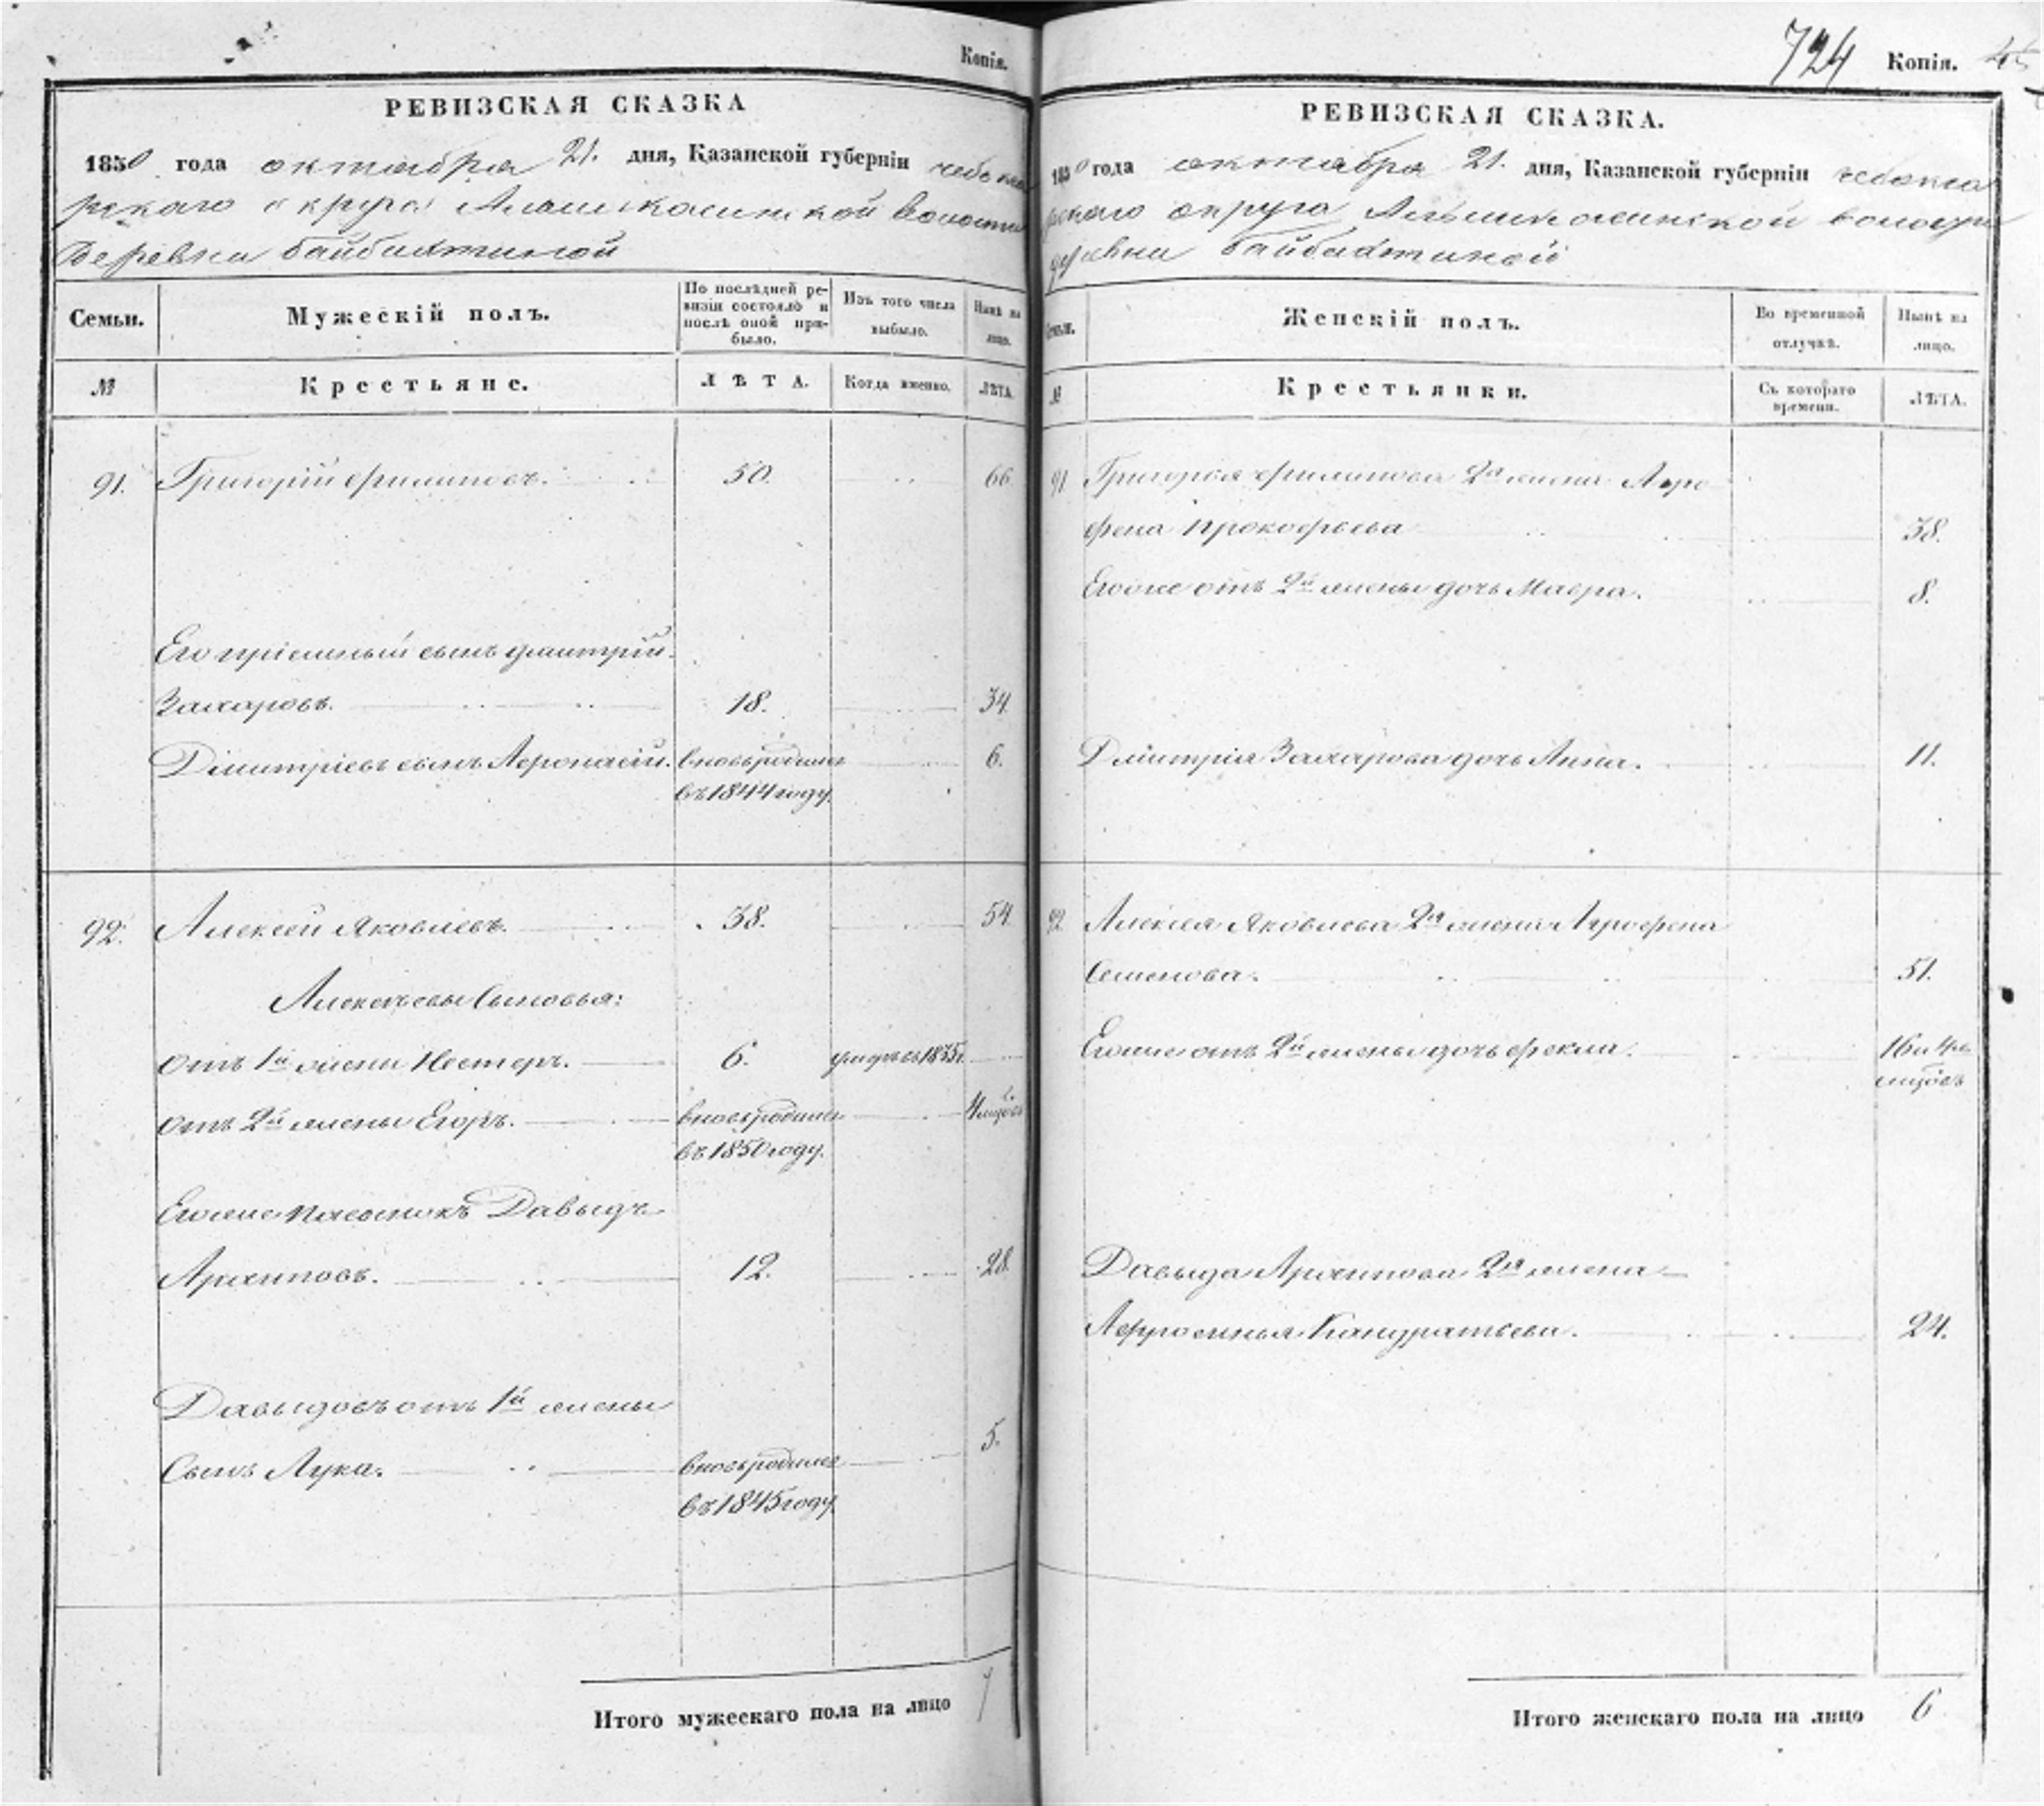 Копія.
РЕВИЗСКАЯ СКАЗКА
1850 года октября 21. дня, Казанской губерніи чебокса
рскаго округа Алымкасинской волости
деревни Байбахтиной
Семьи.
Мужескій полъ.
По послѣдней ре-
визіи состояло и
послѣ оной при-
было.
Изъ того числа
выбыло.
Нынѣ на
лицо.
№
Крестьяне.
ЛѢТА.
Когда именно.
ЛѢТА.
91. Григорій Филиповъ. 50. 66.
Его пріемный сынъ Дмитрій
Захаровъ. 18. 34.
Дмитріевъ сынъ Афонасій. вновьродился 6.
въ 1844 году.
92. Алексей Яковлевъ. 38. 54.
Алексеевы Сыновья:
отъ 1й жены Нестеръ. 6. умеръ въ 1835 г.
отъ 2й жены Егоръ. вновьродился 4 мцов
въ 1850 году.
Егоже пасынокъ Давыдъ
Архиповъ. 12. 28.
Давыдовъ отъ 1й жены
5.
Сынъ Лука. вновьродился
въ 1845 году.
Итого мужескаго пола на лицо 7
724 Копія. 45
РЕВИЗСКАЯ СКАЗКА.
1850 года октября 21. дня, Казанской губерніи чебокса
рскаго округа Алымкасинской волости
деревни Байбахтиной
Семьи.
Женскій полъ.
Во временной
отлучкѣ.
Нынѣ на
лицо.
№
Крестьянки.
Съ котораго
времени.
ЛѢТА.
91 Григорья Филипова 2я жена Агро
фена Прокофьева 38.
Егоже отъ 2й жены дочь Мавра. 8.
Дмитрія Захарова дочь Анна. 11.
92. Алексея Яковлева 2я жена Агрофена
Семенова. 51.
Егоже отъ 2й жены дочь Фекла. 16 и 4ре
мцовъ
Давыда Архипова 2я жена
Афросинья Кандратьева. 24.
Итого женскаго пола на лицо 6